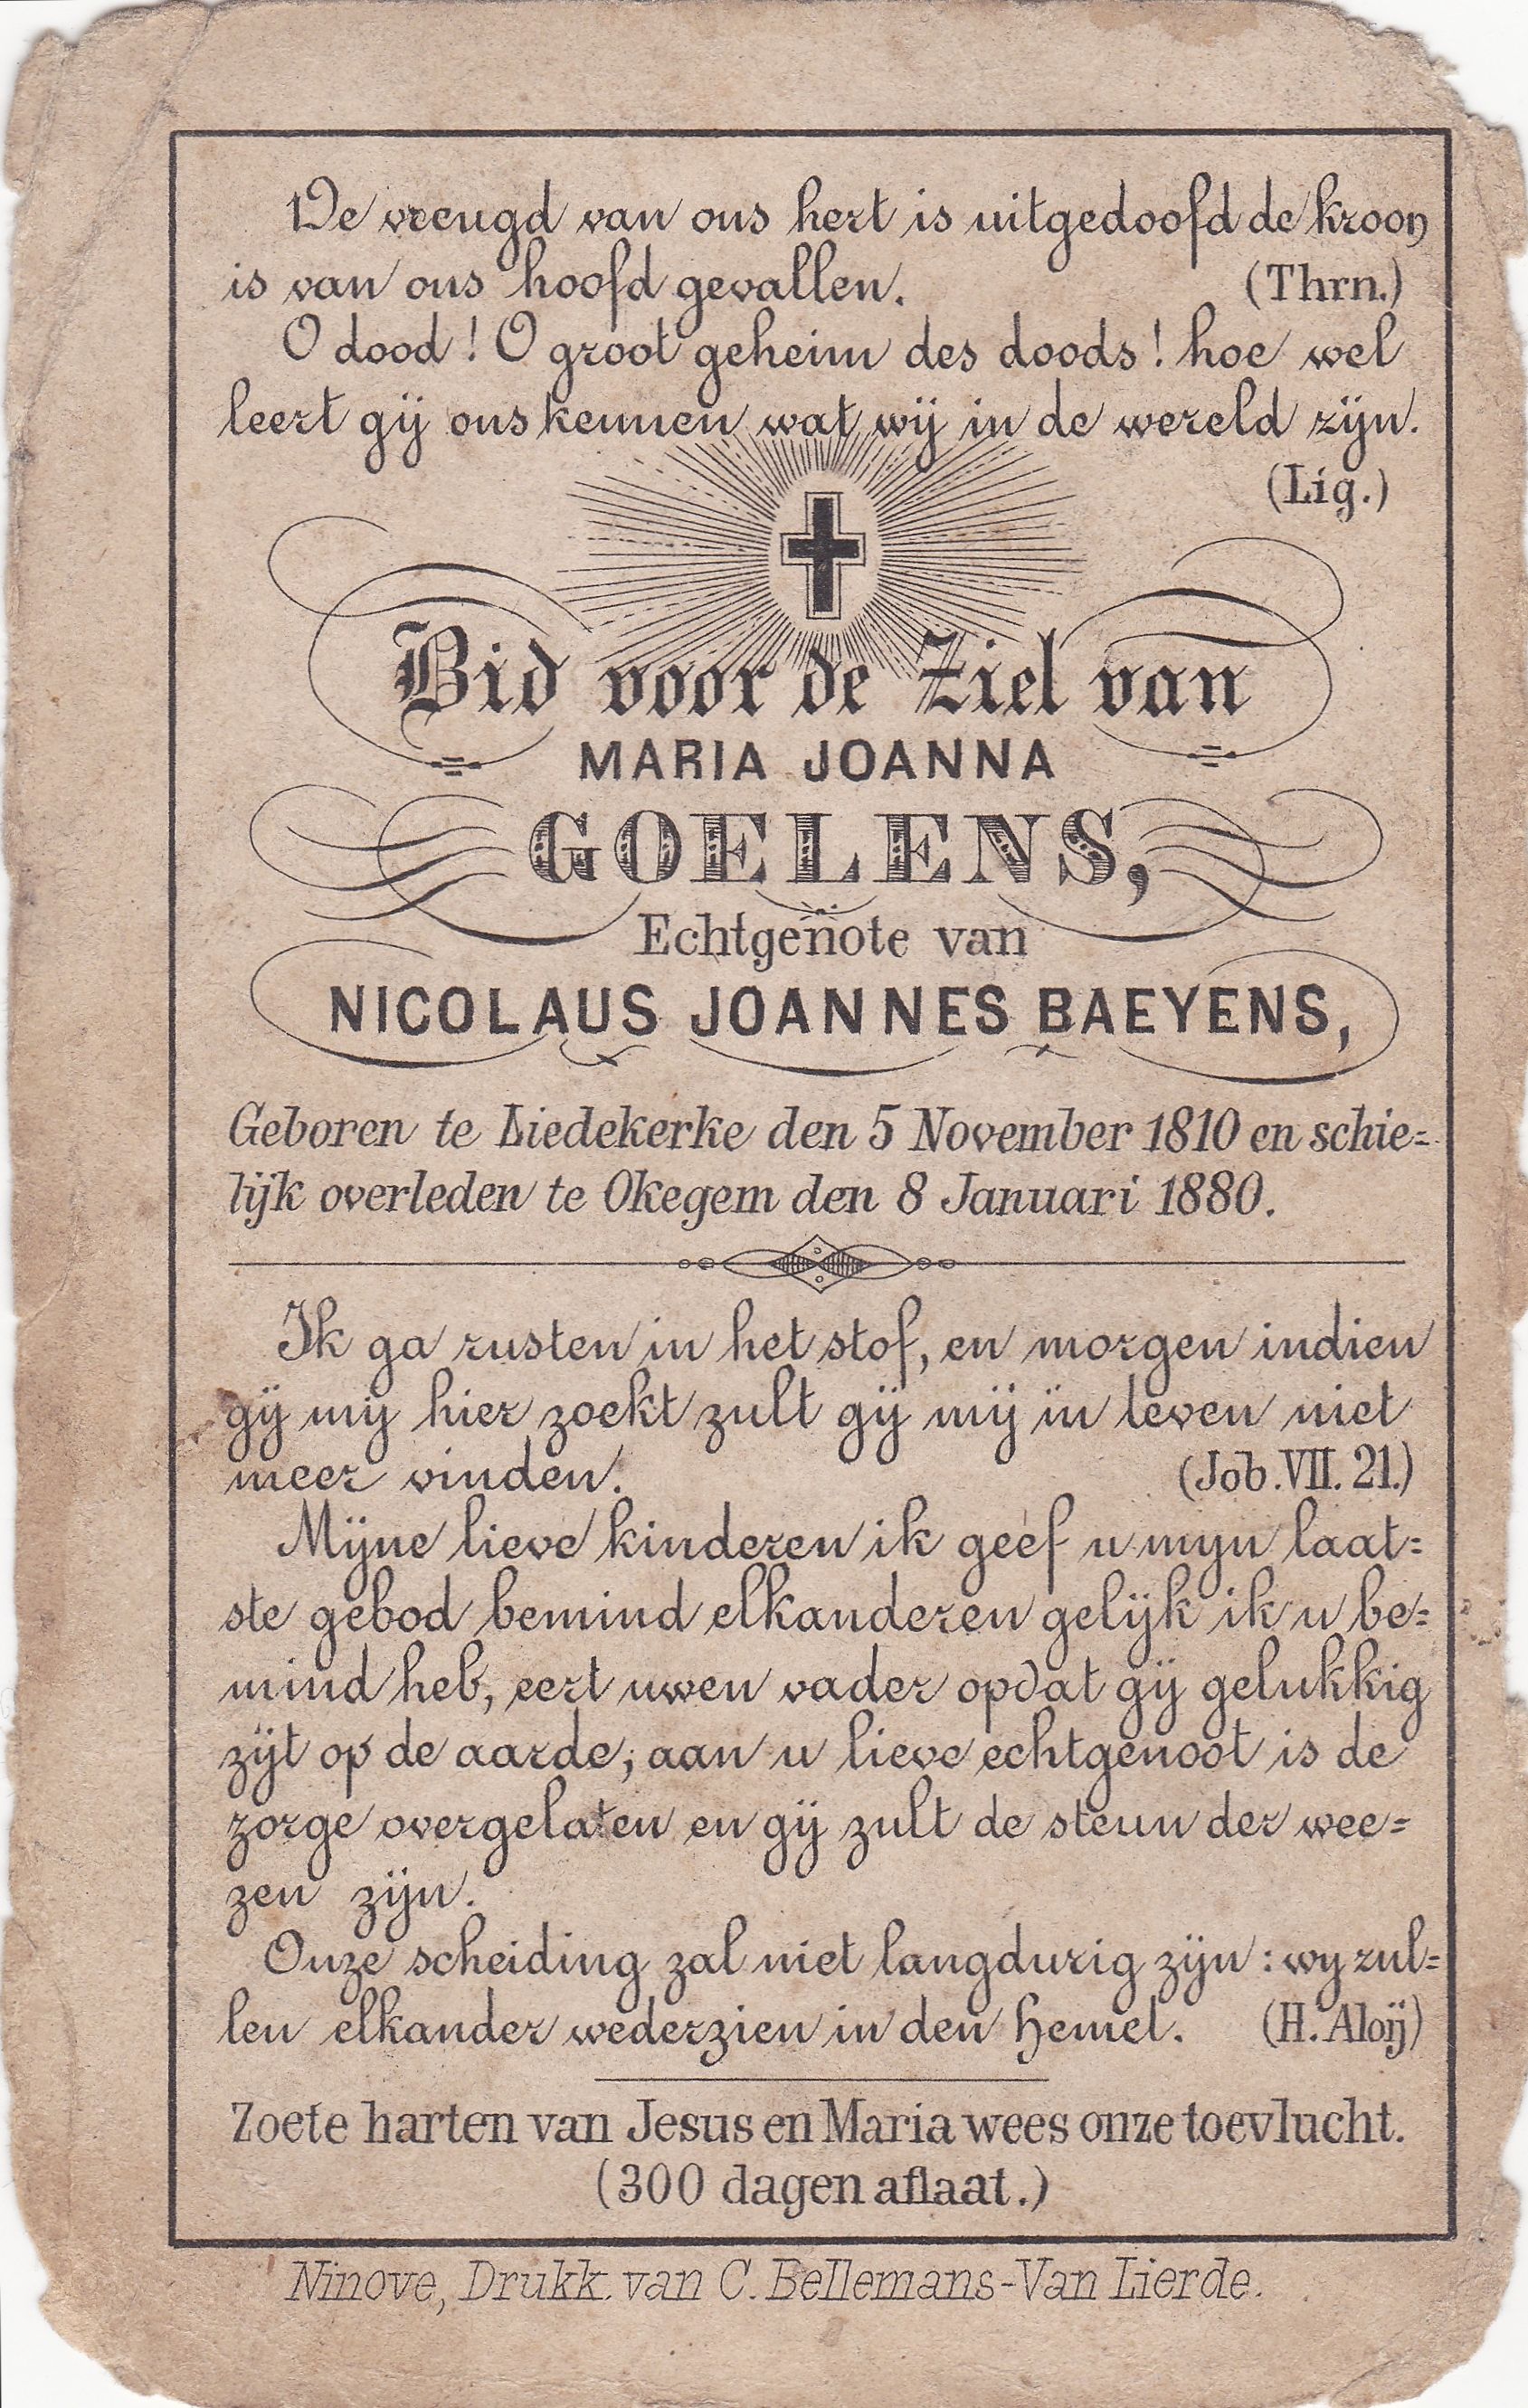 De vreugd van ons hert is uitgedoofd de kroon
is van ons hoofd gevallen. (Thrn.)
O dood! O groot geheim des doods! hoe wel
leert gij ons kennen wat wij in de wereld zijn.
(Lig.)
Bid voor de Ziel van
MARIA JOANNA
GOELENS,
Echtgenote van
NICOLAUS JOANNES BAEYENS,
Geboren te Liedekerke den 5 November 1810 en schie=
lijk overleden te Okegem den 8 Januari 1880.
Ik ga rusten in het stof, en morgen indien
gij mij hier zoekt zult gij mij in leven niet
meer vinden. (Job. VII. 21.)
Mijne lieve kinderen ik geef u myn laat=
ste gebod bemind elkanderen gelijk ik u be=
mind heb, eert uwen vader opdat gij gelukkig
zijt op de aarde; aan u lieve echtgenoot is de
zorge overgelaten en gij zult de steun der wee=
zen zijn.
Onze scheiding zal niet langdurig zijn: wy zul=
len elkander wederzien in den Hemel. (H. Aloij)
Zoete harten van Jesus en Maria wees onze toevlucht.
(300 dagen aflaat.)
Ninove, Drukk. van C. Bellemans-Van Lierde.